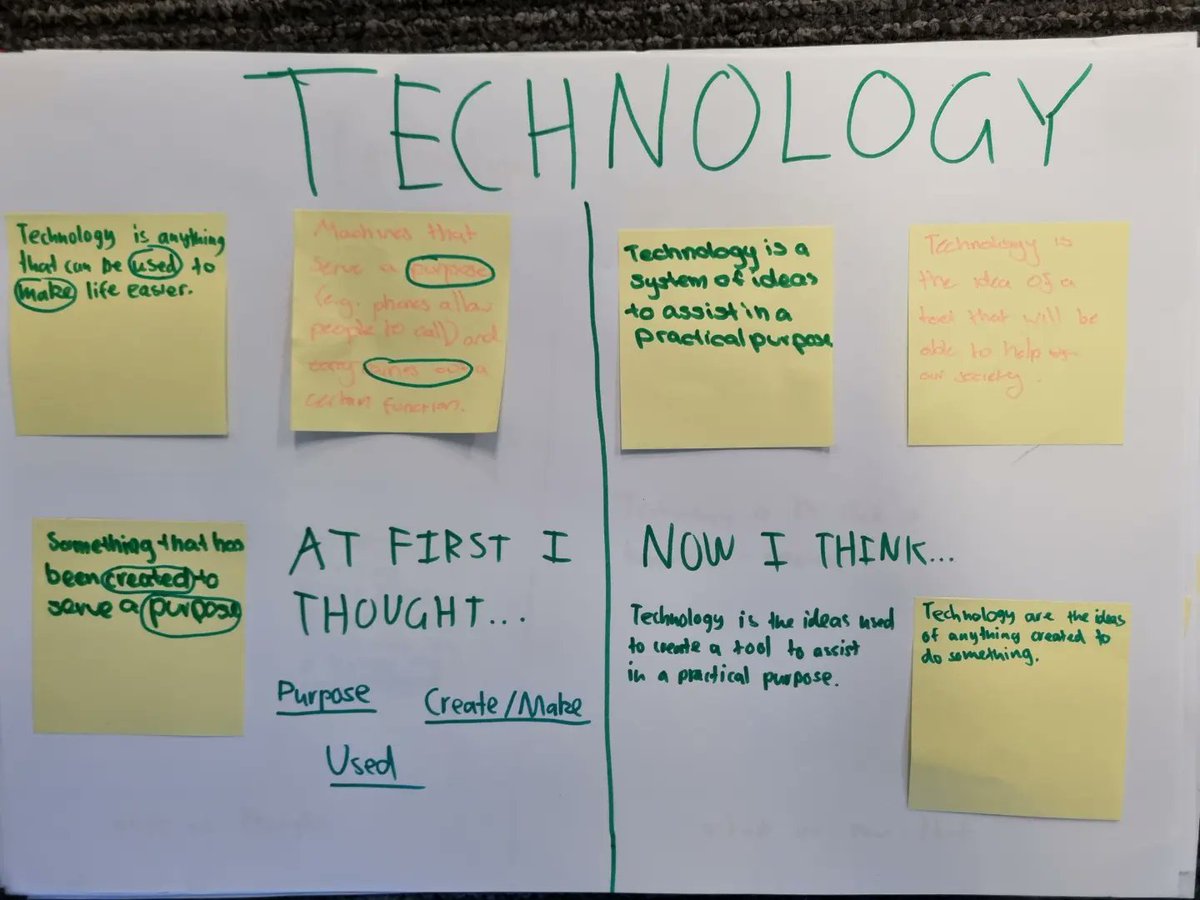 TECHNOLOGY
Technology is anything
that can be used to
make life easier.
Machines that
serve a purpose
(e.g. phones allow
people to call) and
carry out a
certain function.
Something that has
been created to
serve a purpose
AT FIRST I
THOUGHT...
Purpose
Create/Make
Used
Technology is a
system of ideas
to assist in a
practical purpose
Technology is
the idea of a
tool that will be
able to help
our society.
NOW I THINK...
Technology is the ideas used
to create a tool to assist
in a practical purpose.
Technology are the ideas
of anything created to
do something.